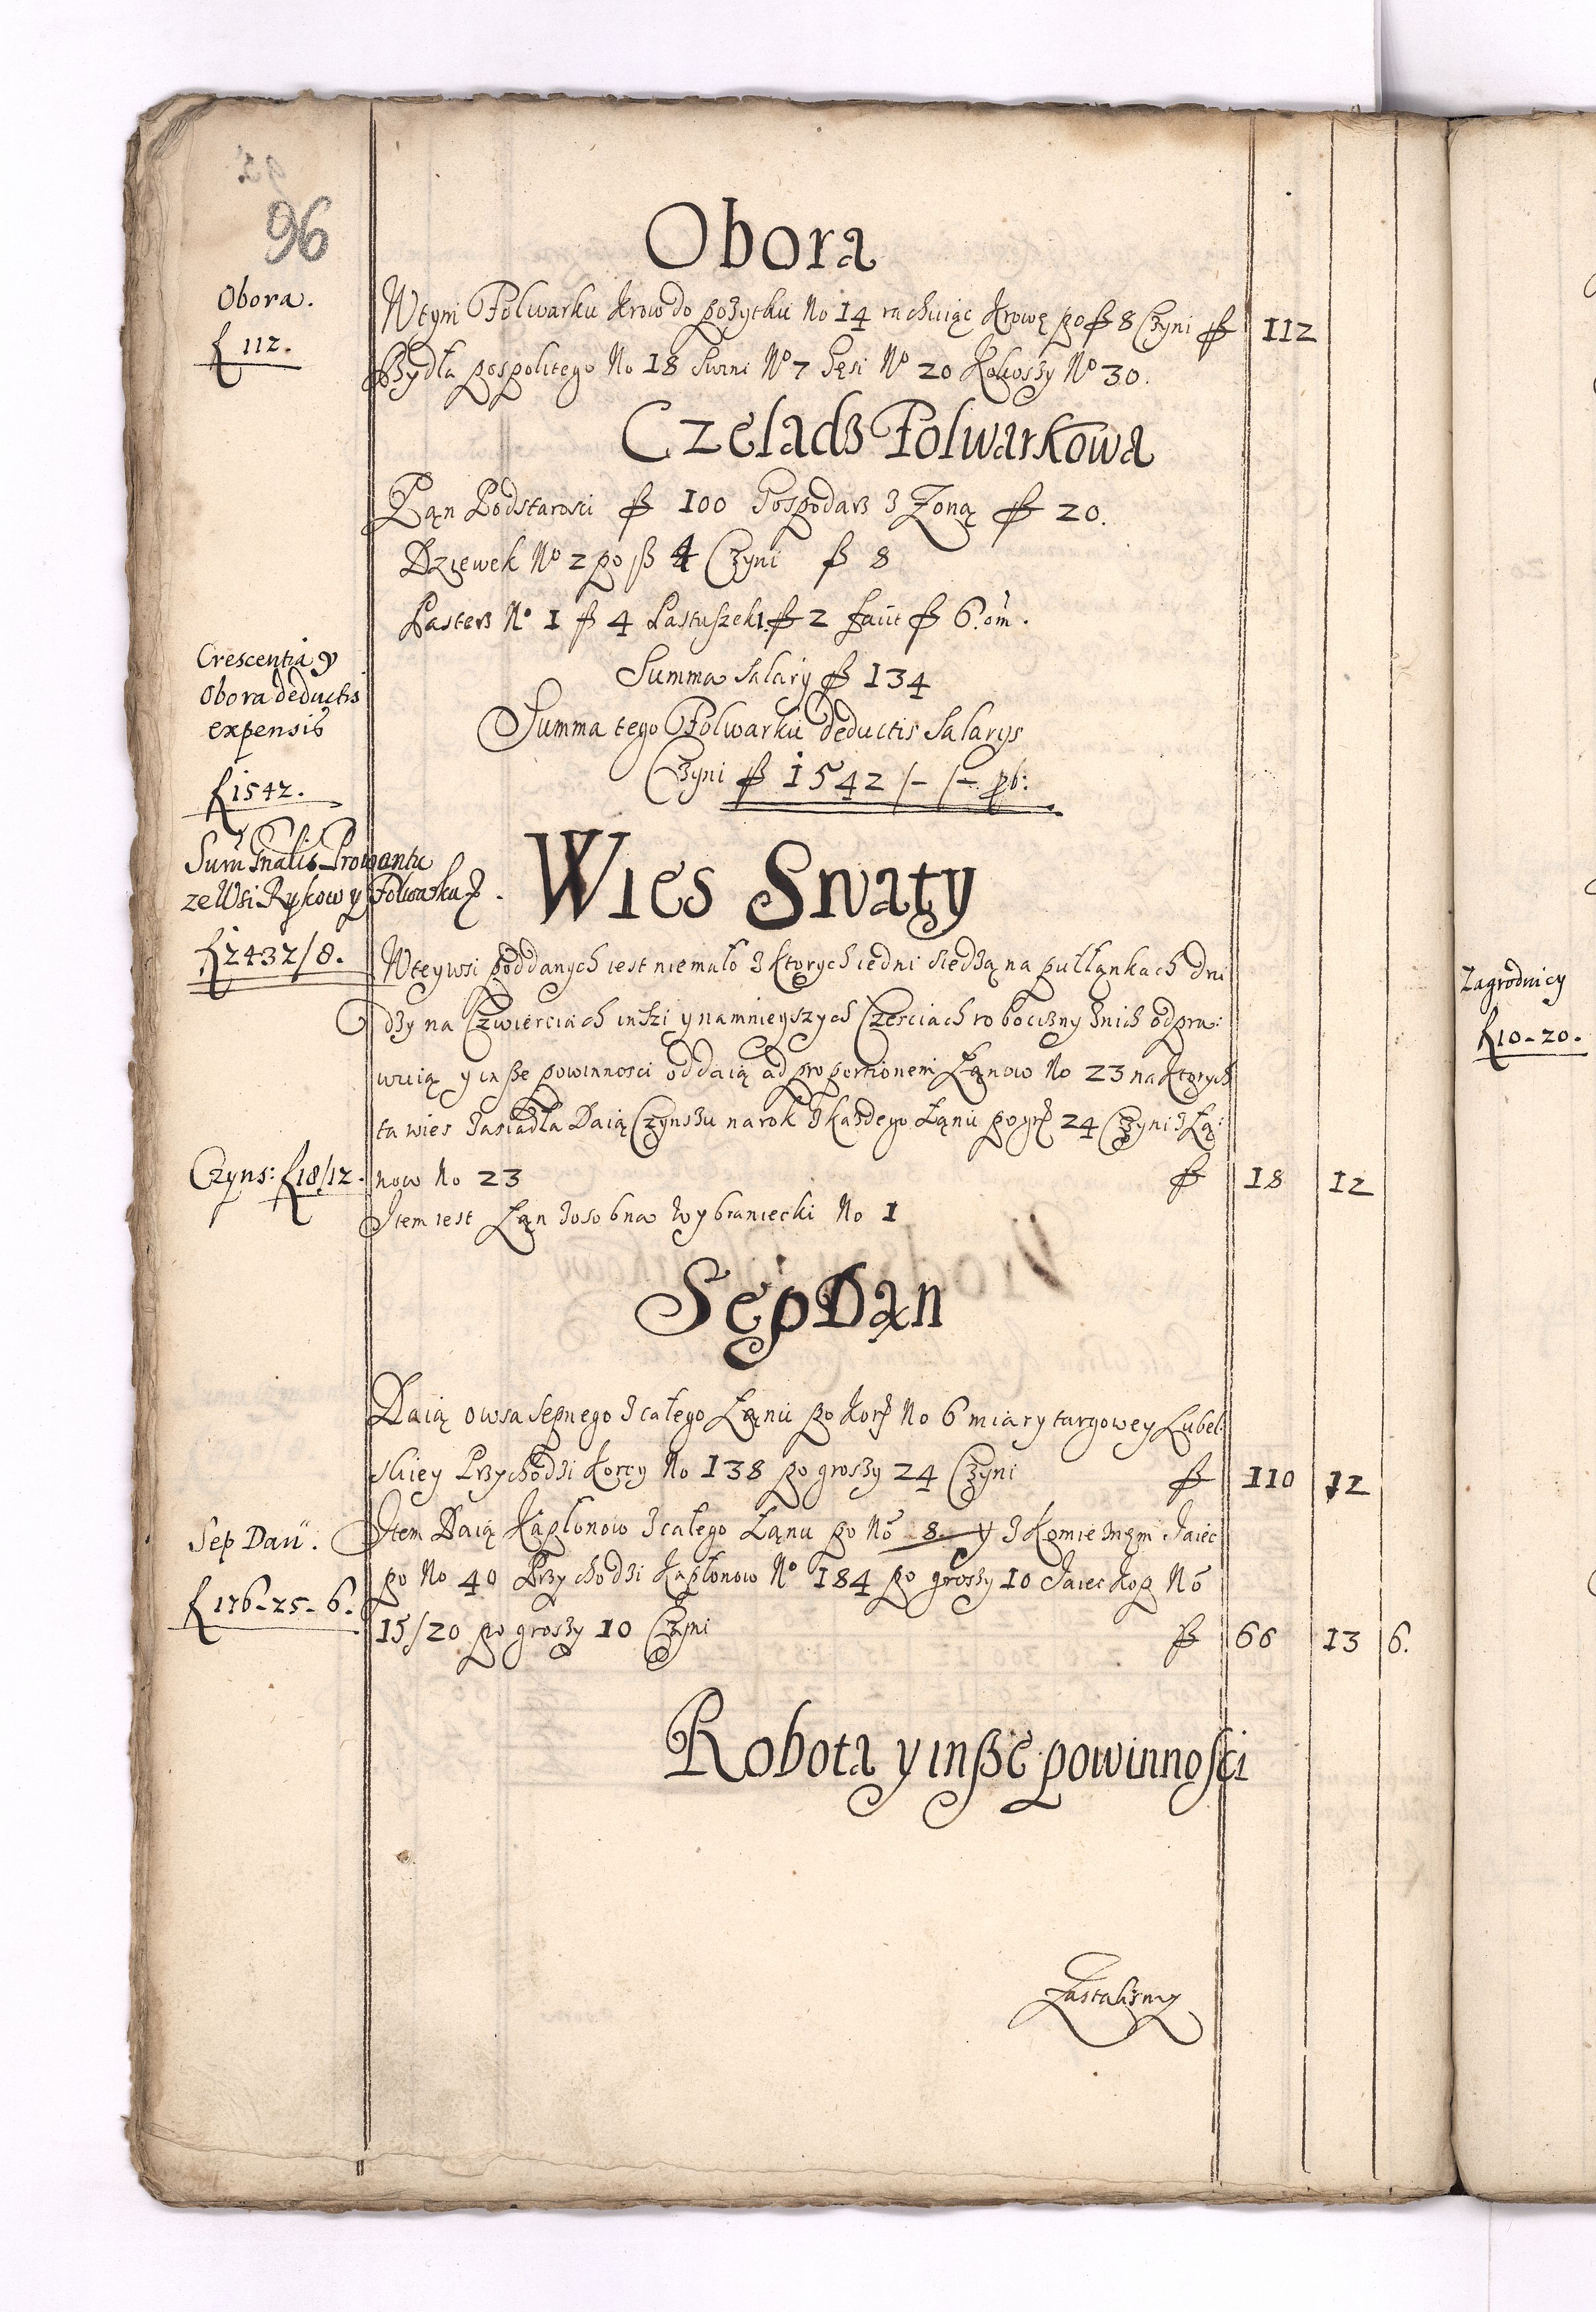 96
Obora
Obora.
f 112.
W tym Folwarku Krow do pożytku No 14 rachuiąc Krowę po f 8 Czyni f 112
Bydła pospolitego No 18 Swini No 7 Gęsi No 20 Kokoszy No 30.
Czeladz Folwarkowa
Pąn Podstarosci f 100 Gospodarz z Zoną f 20.
Dziewek No 2 po f 4 Czyni f 8
Pasterz No 1 f 4 Pastuszek 1. f 2 f 6.
Summa Salary f 134
Crescentia y
Obora deductis
expensis
f 1542.
Summa tego Folwarku deductis Salarys
Czyni f 1542 /- /-
Sum̃ Gnalis Prowantu
ze Wsi Rykow y Folwarku
f 2432/8.
Wies Swaty
W tey wsi poddanych iest niemało z ktorych iedni siedzą na pułłąnkach dru
dzy na Czwierciach inszi y namnieyszych Czesciach robocizny z nich odpra:
wuią y insze powinnosci oddaią ad proportionem Łąnow No 23 na ktorych
ta wies zasiadła Daią Czynszu na rok z każdego Łąnu po gr 24 Czyni z Łą:
Czyns: f 18/12.
now No 23 f 18 12
Item iest Łąn zosobna Wybraniecki No 1
Sęp Dąn
Daią owsa sepnego z całego Łąnu po Kor No 6 miary targowey Lubel:
skiey Przychodzi Korcy No 138 po groszy 24 Czyni f 110 12
Sep Dan.
f 176-25-6.
Item Daią Kapłonow z całego Łąnu po No 8 y z Jaiec
po No 40 Przychodzi Kapłonow No 184 po groszy 10 Jaiec Kop No
15/20 po groszy 10 Czyni f 66 13 6.
Robota y insze powinnosci
Zastalismy
Zagrodnicy
f 10-20.